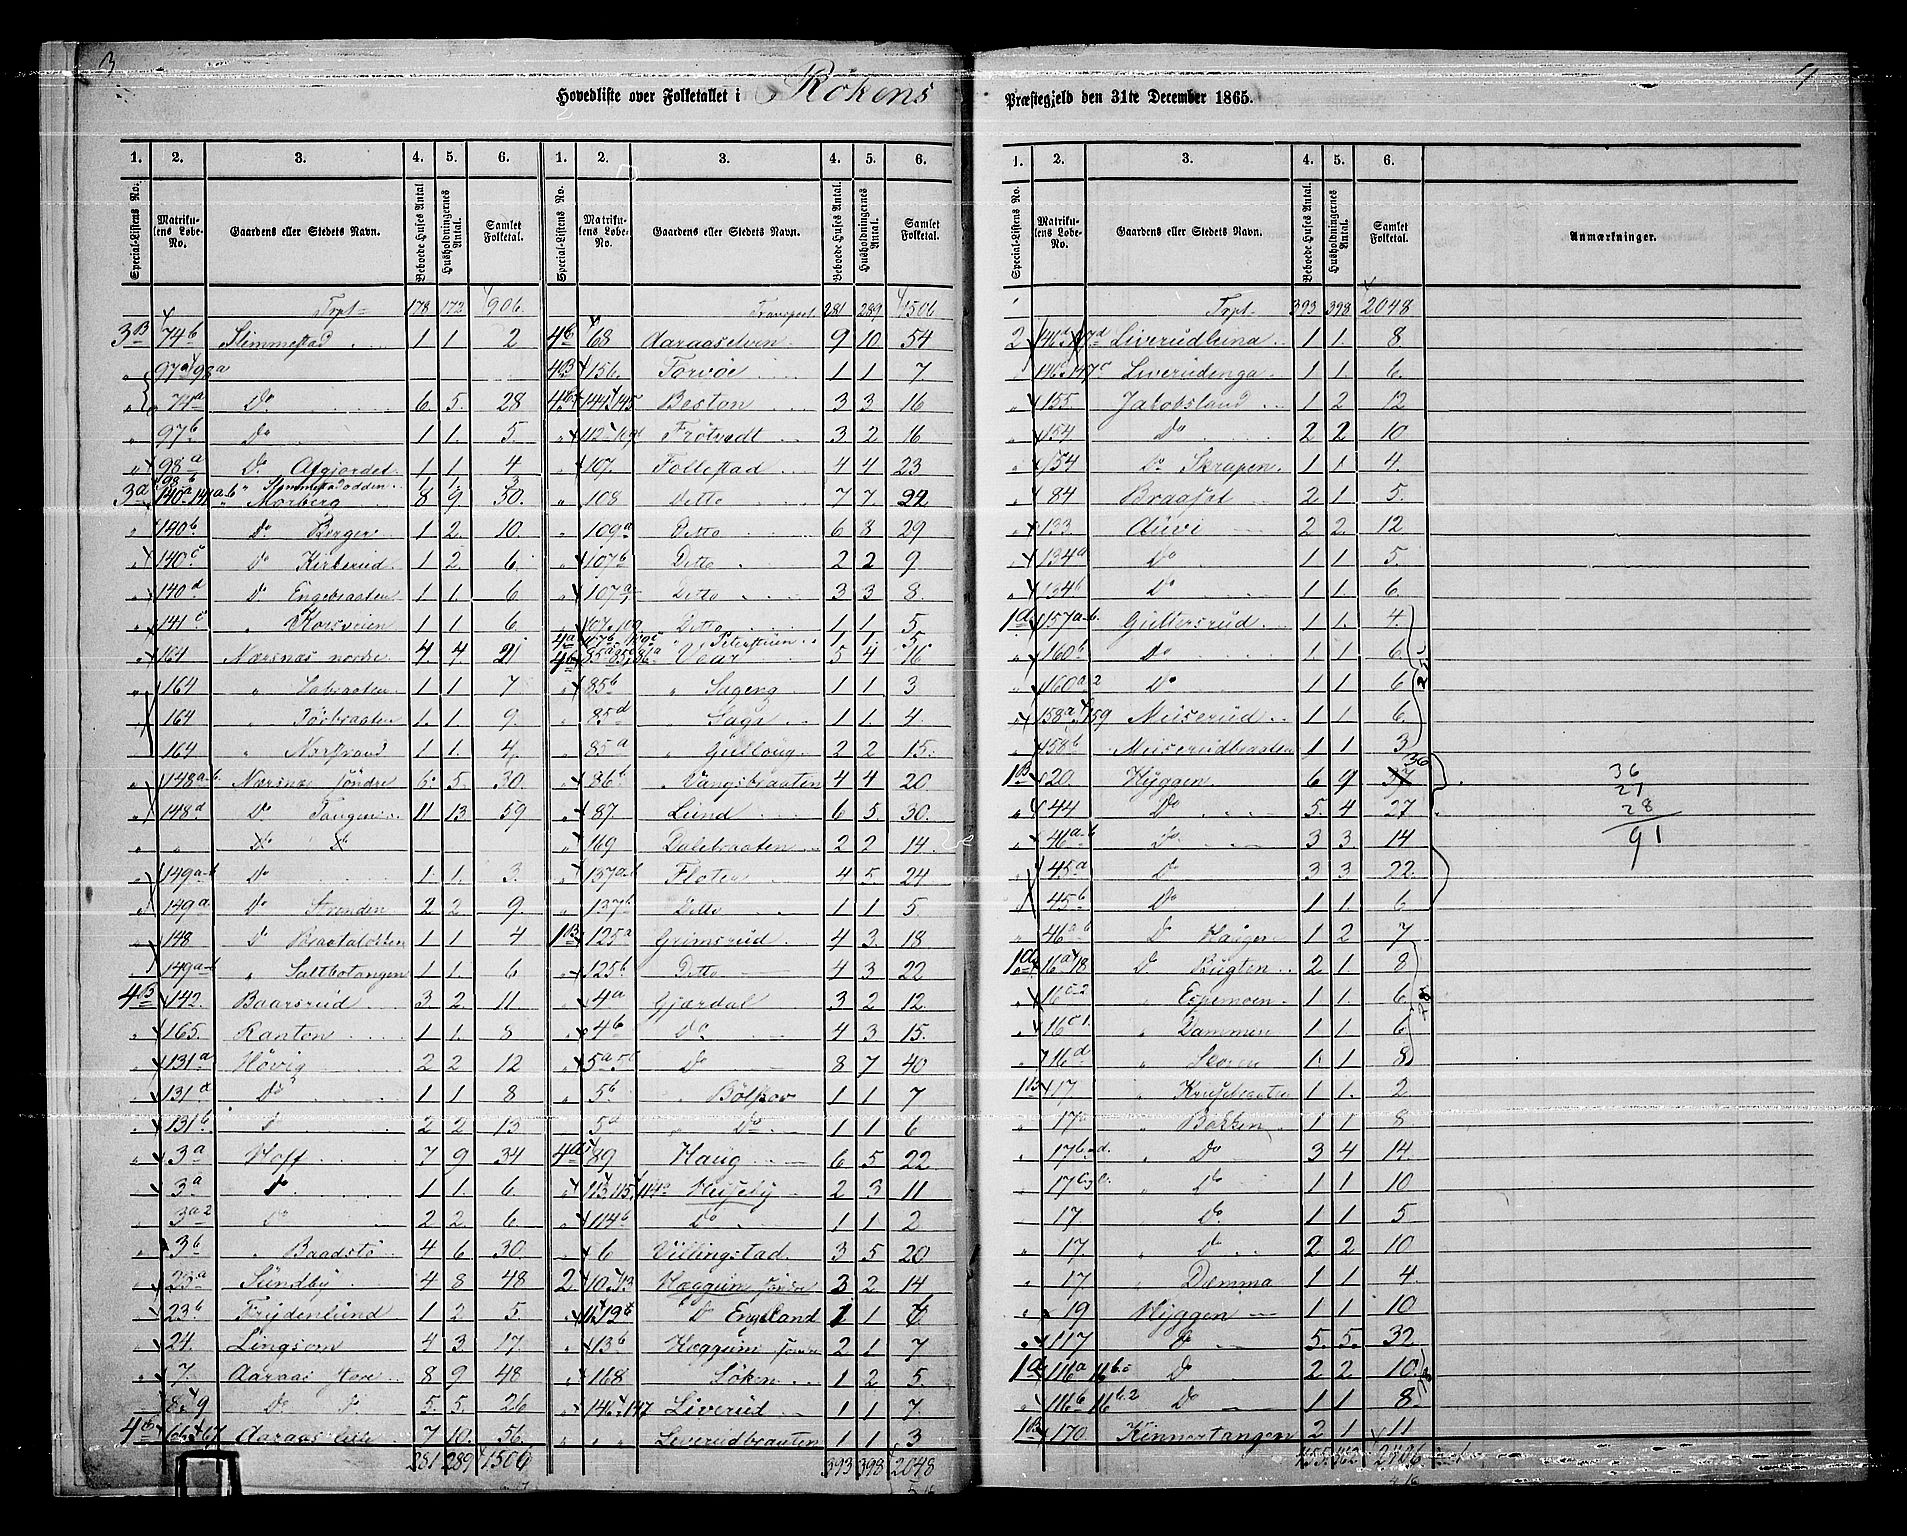 3
4
Hovedliste over Folketallet i Rökens
Præstegjeld den 31te December 1865.
1. 2. 3. 4. 5. 6. 1. 2. 3. 4. 5. 6.
Special-Listens No. Matrikulens Løbe-No. Gaardens eller Stedets Navn. Beboede Huses Antal. Husholdningernes Antal. Samlet Folketal. Special-Listens No. Matrikulens Løbe-No. Gaardens eller Stedets Navn. Beboede Huses Antal. Husholdningernes Antal. Samlet Folketal.
Trpt 178 172 906
3B 74b Slimmestad 1 1 2
97a 98a
74a Do 6 5 28
97b Do 1 1 5
98a Do Afgjordet 1 1 4
98b " Slemmestadodden 1 1 3
3a 140a 141a-b Morberg 8 9 50
140b Do Berger 1 2 10
140c Do Kirkerud 1 2 6
140d Do Engebraaten 1 1 6
141c " Korsveien 1 1 6
164 Nærsnæs nordre 4 4 21
164 1 1 7
164 " Törbraaten 1 1 9
164 1 1 4
148a-b Nærsnæs söndre 6 5 30
148d Do Tangen 11 13 59
" Do Do
149a-b Do 1 1 3
149a Do Stranden 2 2 9
148 Do Braatalökken 1 1 4
149a-b " Saltbotangen 1 1 6
4B 142 Baarsrud 3 2 11
165 Ranton 1 1 8
131a Hövig 2 2 12
131d Do 1 1 8
131b Do 2 2 13
3a Hoff 7 9 34
3a Do 1 1 6
3a2 Do 2 2 6
3b " Baadstö 4 6 30
23a Sundby 4 8 48
23b Frydenlund 1 2 5
24 Lingsom 4 3 17
7 Aaraas store 8 9 48
8 9 Do Do 5 5 26
4b 66 67 Aaraas lille 7 10 56
281 289 1506
Transport 281 289 1506
4b 68 Aaraaselven 9 10 54
4B 156 Torvöe 1 1 7
4b 144 145 Beston 3 3 16
112 Frötvedt 3 2 16
107 Follestad 4 4 23
108 Ditto 7 7 24
109a Ditto 6 8 29
107b Ditto 2 2 9
107a Ditto 3 3 8
107 109 Ditto 1 1 5
4a " Peterstuen 1 1 5
4b 85 86a Vear 5 4 16
85b " Sageng 1 1 3
85d " Saga 1 1 4
85a " Gulloug 2 2 15
86b " Vangsbraaten 4 4 20
87 Lund 6 5 30
169 Dalebraaten 2 2 14
137a-b Floten 4 5 24
137b Ditto 1 1 5
1B 125a Grimsrud 4 3 18
125b Ditto 4 3 22
4a Gjærdal 3 2 12
4b Do 4 3 15
5a 5b Do 8 7 40
5b " Bölstov 1 1 7
5a " Do 1 1 6
4a 89 Haug 6 5 22
113 115 114a Huseby 2 3 11
114b Do 1 1 2
6 Villingstad 3 5 20
2 10 13 Heggum söndre 3 2 14
11 12 Do Engeland 1 1 6
13b Heggum 2 1 7
168 Söken 1 2 5
146 147 Liverud 1 1 7
" " Liverudbraaten 1 1 3
393 398 2048
1. 2. 3. 4. 5. 6.
Special-Listens No. Matrikulens Løbe-No. Gaardens eller Stedets Navn. Beboede Huses Antal. Husholdningernes Antal. Samlet Folketal. Anmærkninger.
Trpt 393 398 2048
2 146d 147d Liverudhuna 1 1 8
146c 147c Liverudenga 1 1 6
155 Jakobsland 1 2 12
154 Do 2 2 10
154 Do Skrapen 1 1 4
84 Braasöt 2 1 5
133 Auvi 2 2 12
134a Do 1 1 5
134b Do 1 1 6
1a 157a-b Guttersrud 1 1 4
160b Do 1 1 6
160a2 Do 1 1 6
158a 159 Muserud 1 1 6
158b Muserudbraaten 1 1 3
25
1B 20 Hyggen 6 9 37 36
44 Do 5 4 27
46a-b Do 3 3 14
45a Do 3 3 22
45b Do 1 1 6
36
27
28
91
46ab Do Haugen 1 2 7
1a 16a 18 Do Bugten 2 1 8
16c2 " Espemoen 1 1 6
16c1 " Dammen 1 1 6
16d 1 1 8
28
1B 17 " Krusebraaten 1 1 2
17a " Bakken 1 1 8
17b-d " Do 3 4 14
17 " Do 1 1 10
17 " Do 1 1 5
17 " Do 2 2 10
17 " Dæmma 1 1 4
19 Hyggen 1 1 10
117 Do 5 5 32
1a 116a 116b Do 2 2 10
116b 116b2 Do 1 1 8
18
1B 170 Kinnertangen 2 1 11
455 462 2406